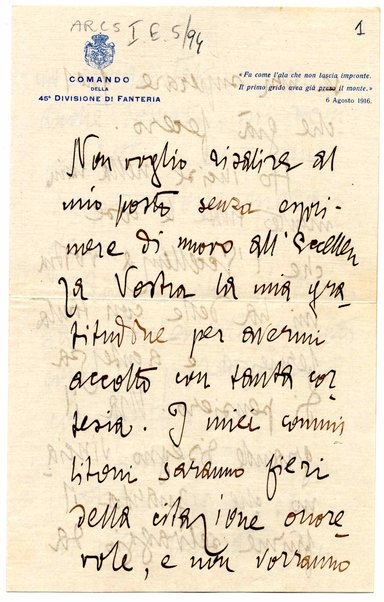 ARCS I E. 5/94
1
COMANDO
DELLA
45ª DIVISIONE DI FANTERIA
«Fa come l'ala che non lascia impronte.
Il primo grido area già preso il monte.»
6 Agosto 1916.
Non voglio risalire al
mio posto senza espri-
mere di nuovo all'Eccellen
za Vostra la mia gra-
titudine per avermi
accolto con tanta cor
tesia. I miei commi
litoni saranno fieri
della citazione onore
vole, e non vorranno